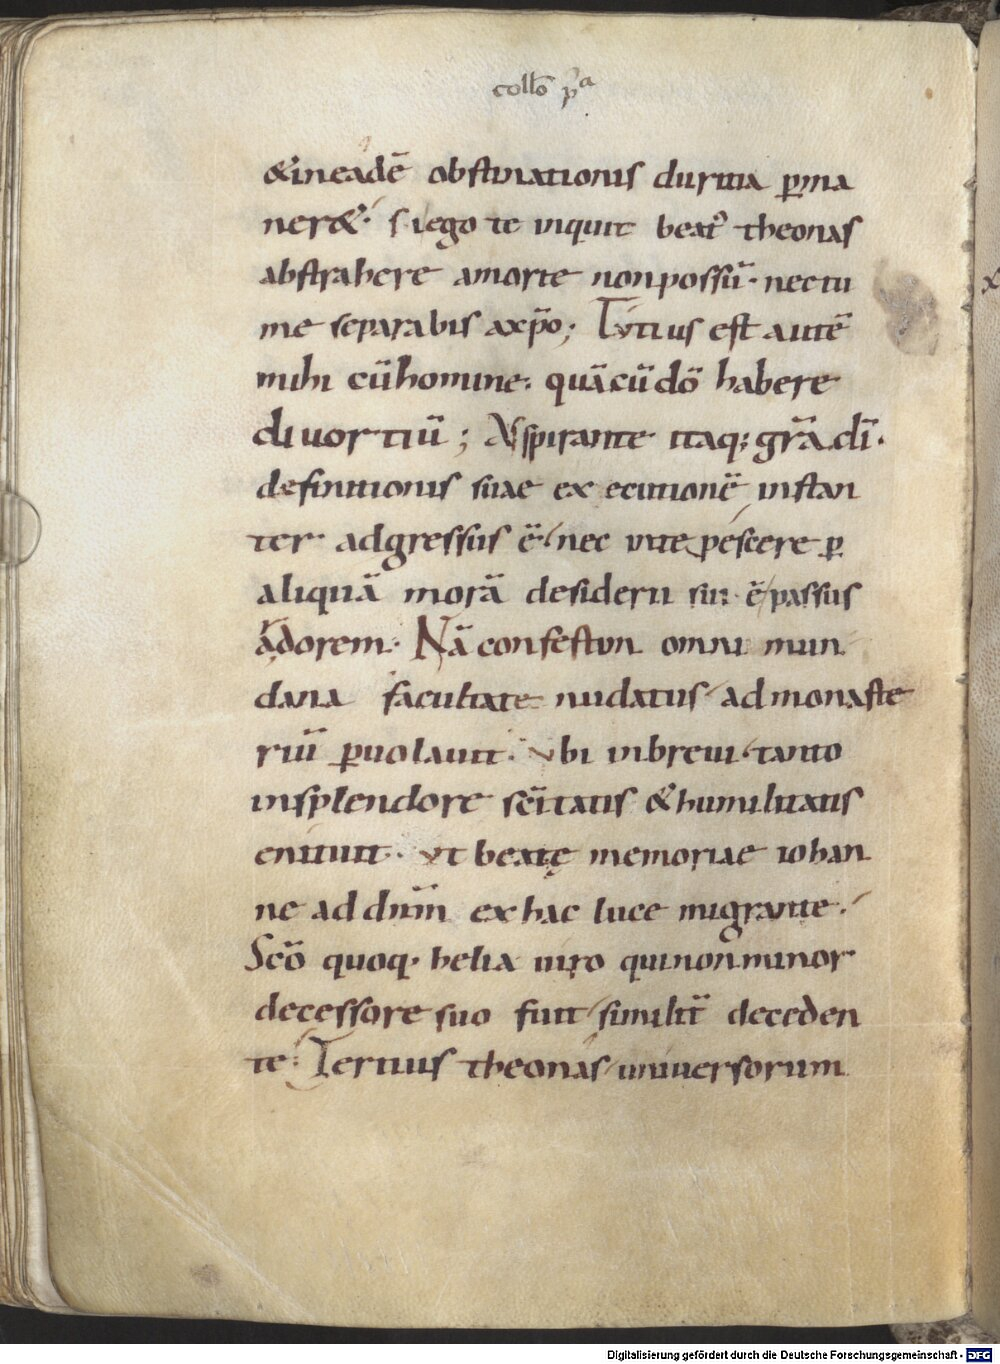 collo᷒ pᵃ
&ineadē obstinationis duritia ꝑma
ner&. si ego te inquit beatꝰ theonas
abstrahere amorte nonpossū. nectu
me separabis axp̄o; Tutius est autē
mihi cūhomine. quācūdō habere
divortiū; Aspirante itaq; gr̄a dī.
definitionis suae ex ecutionē instan
ter adgressus ē nec intepescere ꝑ
aliquā morā desiderii sui ē passus
ardorem. Nā confestim omni mun
dana facultate nudatus ad monaste
riū ꝑvolavit. ubi inbrevi tanto
insplendore sc̄itatis & humilitatis
enituit. ut beatę memoriae iohan
ne ad dn̄m ex hac luce migrante.
Scō quoq. helia viro quinonminor
decessore suo fuit similit̄ deceden
te. Tertius theonas universorum
Digitalisierung gefördert durch die Deutsche Forschungsgemeinschaft - DFG